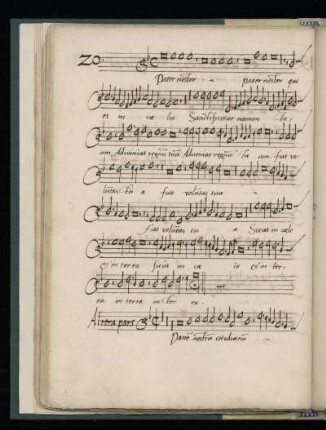 20.
Pater noster pater noster qui
es in cæ lis Sanctificetur nomen tu
um Adveniat regnũ tuũ Adveniat regnũ tu um fiat vo
luntas tu a fiat voluntas tua
fiat voluntas tu a Sicut in cælo
et in terra sicut in cæ lo et in ter
ra in terra in ter ra.
Altera pars
Panẽ nostrũ cotidianũ